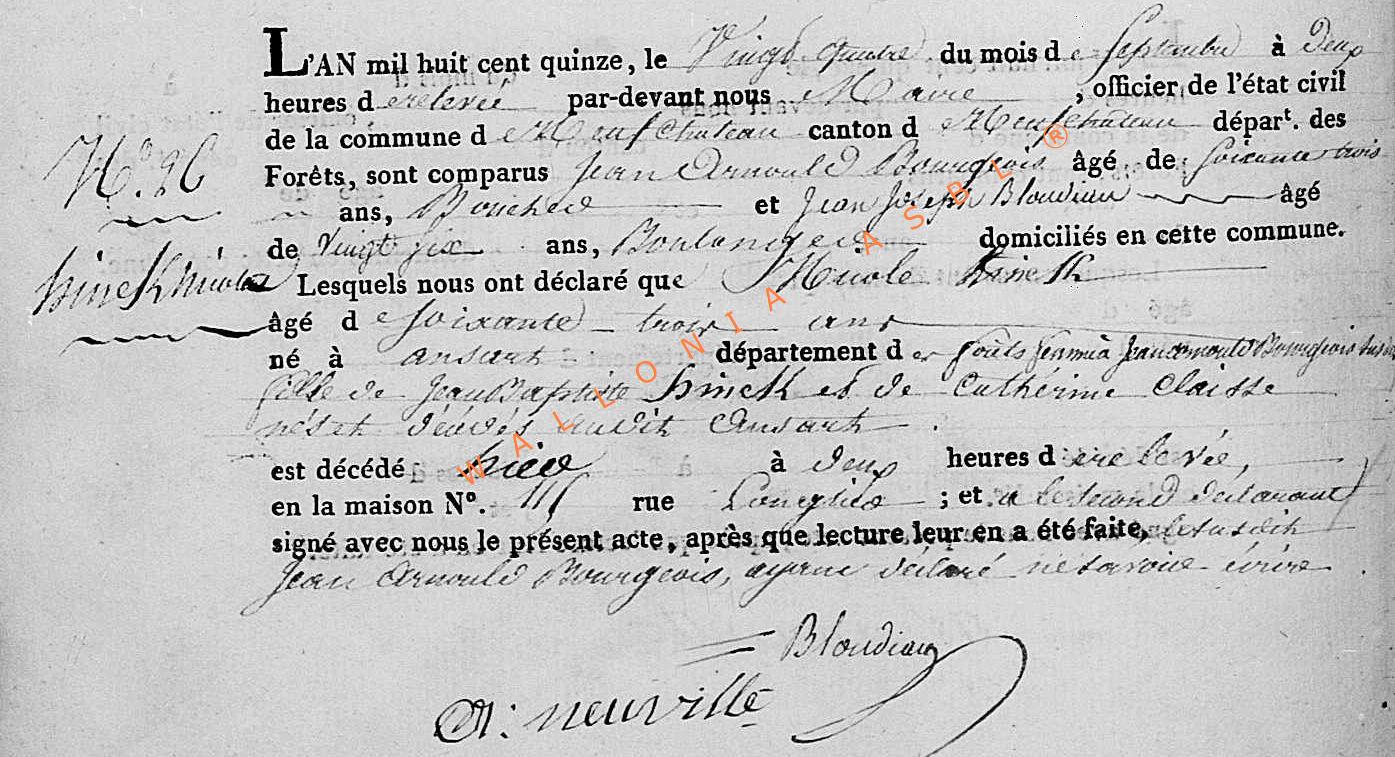 L'AN mil huit cent quinze, le Vingt quatre du mois de Septembre à Deux
heures de relevée par-devant nous Maire, officier de l'état civil
de la commune de Neufchateau canton de Neufchateau départ. des
N°. 26
Forêts, sont comparus Jean Arnould Bourgeois âgé de soixante trois
ans, Boucher et Jean Joseph Blondiau âgé
de vingt six ans, Boulanger domiciliés en cette commune.
hinck nicole
Lesquels nous ont déclaré que Nicole hinck
âgé de soixante trois ans
né à ansart département des forêts femme à Jean arnould Bourgeois
fille de Jean Baptiste hinck et de Cathérine Claisse
nés et décédés audit Ansart.
est décédé hier à deux heures de relevée,
en la maison N°. 111 rue Longlier ; et a le second déclarant
signé avec nous le présent acte, après que lecture leur en a été faite, le susdit
Jean Arnould Bourgeois, ayant déclaré ne savoir écrire.
Blondiau
neuville
WALLONIA ASBL ®